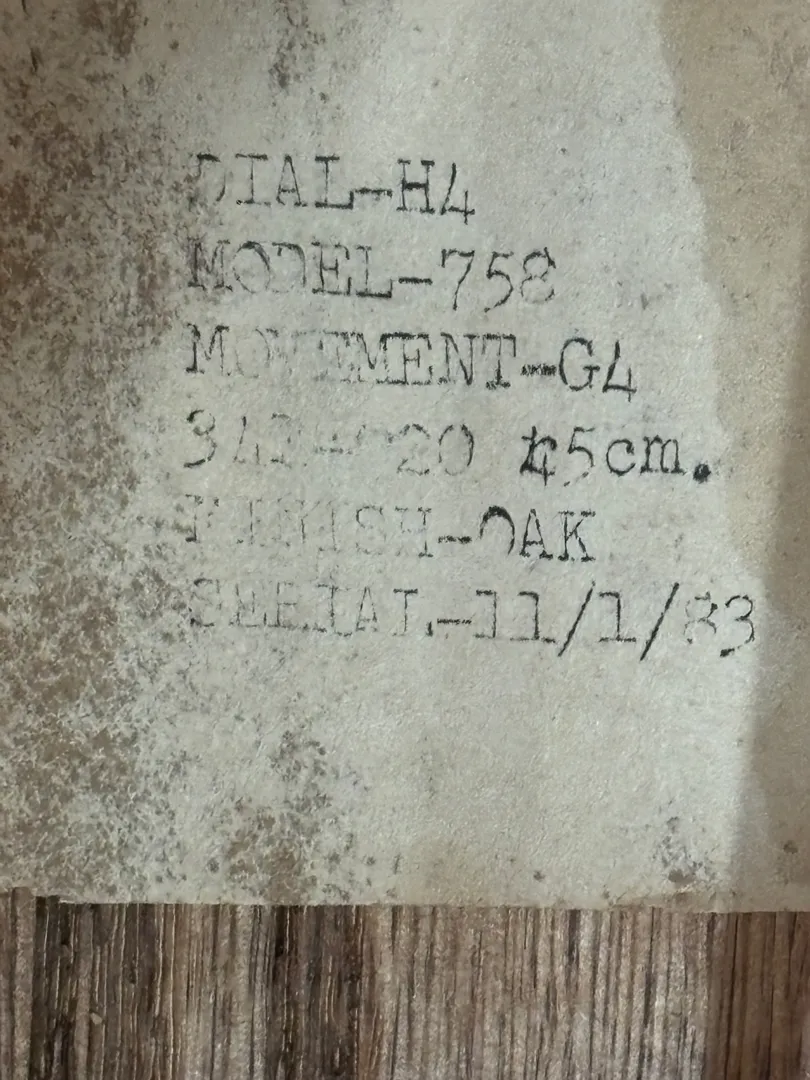 DIAL-H4
MODEL-758
MOVEMENT-G4
5cm.
FINISH-OAK
SERIAL-11/1/83